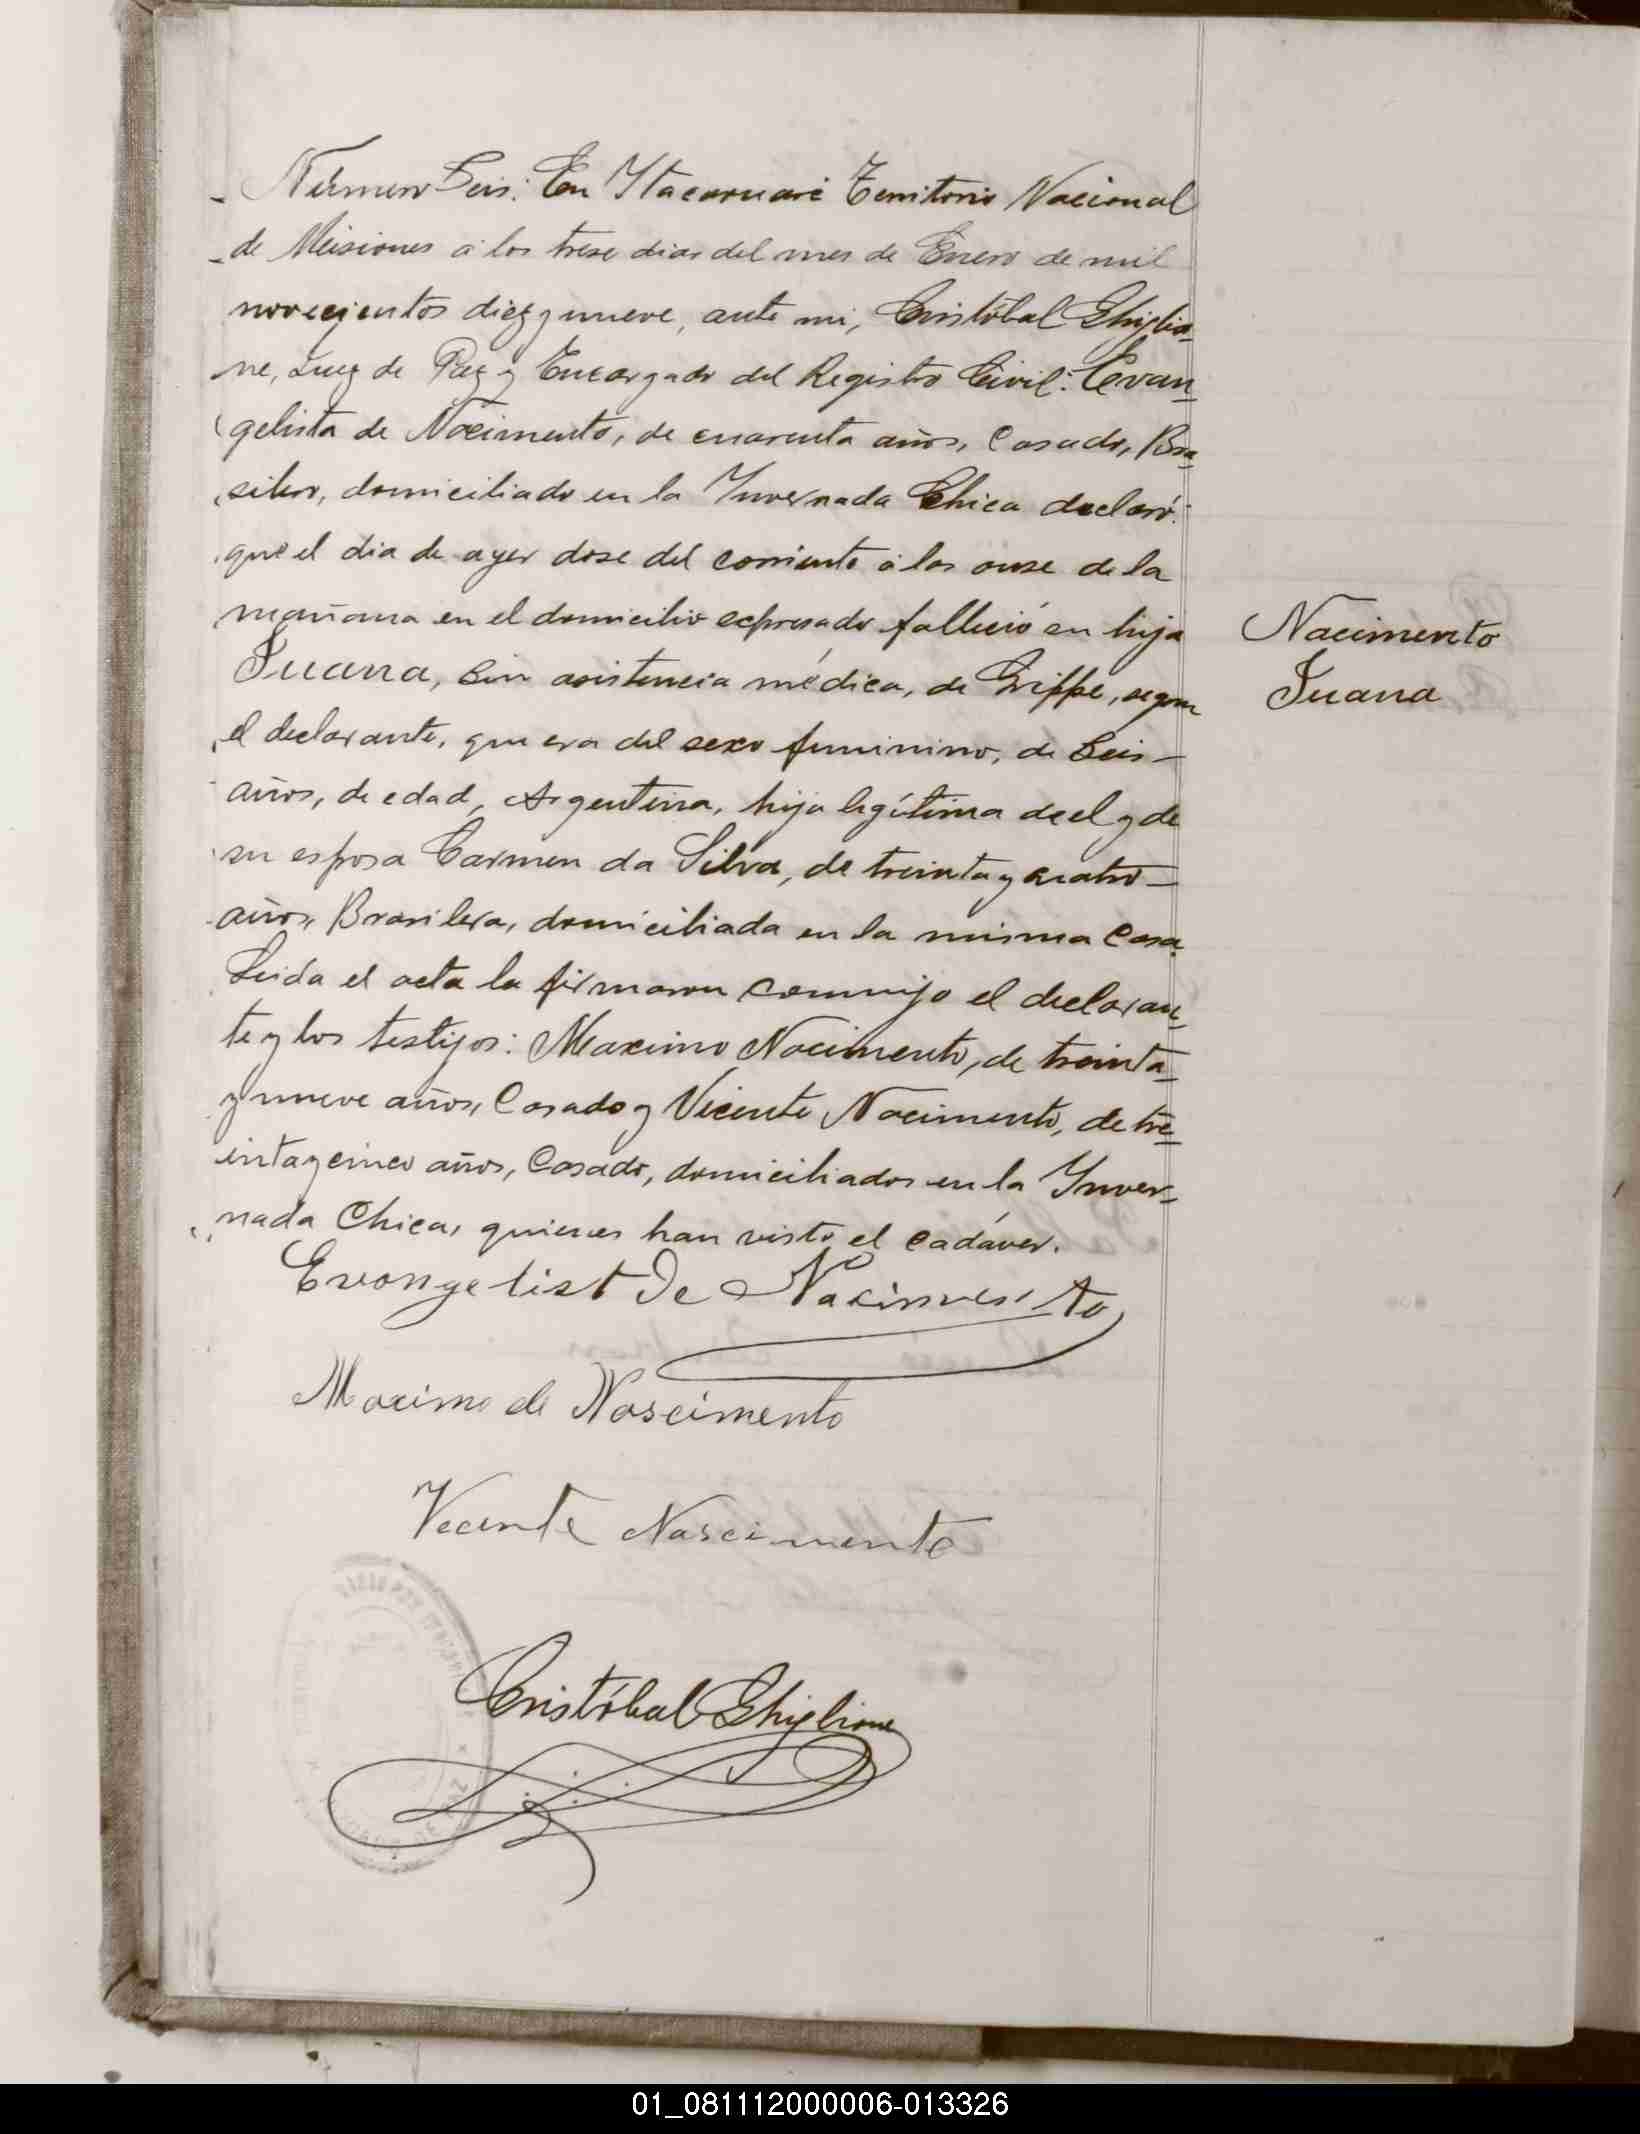 Número Seis: En Itacaruaré Territorio Nacional
de Misiones á los trese dias del mes de Enero de mil
novecientos diez y nueve, ante mi, Cristóbal Ghiglio-
ne, Juez de Paz y Encargado del Registro Civil: Evan-
gelista de Nacimento, de cuarenta años, Casado, Bra-
silero, domiciliado en la Invernada Chica declaró:
que el dia de ayer dose del corriente á las onse de la
mañana en el domicilio expresado falleció su hija
Juana, Sin asistencia médica, de Grippe, segun
el declarante, que era del sexo feminino, de Seis
años, de edad, Argentina, hija legítima de el y de
su esposa Carmen da Silva, de treinta y cuatro
años, Brasilera, domiciliada en la misma Casa.
Leida el acta la firmaron conmigo el declaran-
te y los testigos: Maximo Nacimento, de treinta
y nueve años, Casado y Vicente Nacimento, de tre-
inta y cinco años, Casado, domiciliados en la Inver-
nada Chica, quienes han visto el cadáver.
Nacimento
Juana
Evangelist De Nacimento
Maximo de Nascimento
Vecente Nascimento
Cristóbal Ghiglione
01_081112000006-013326